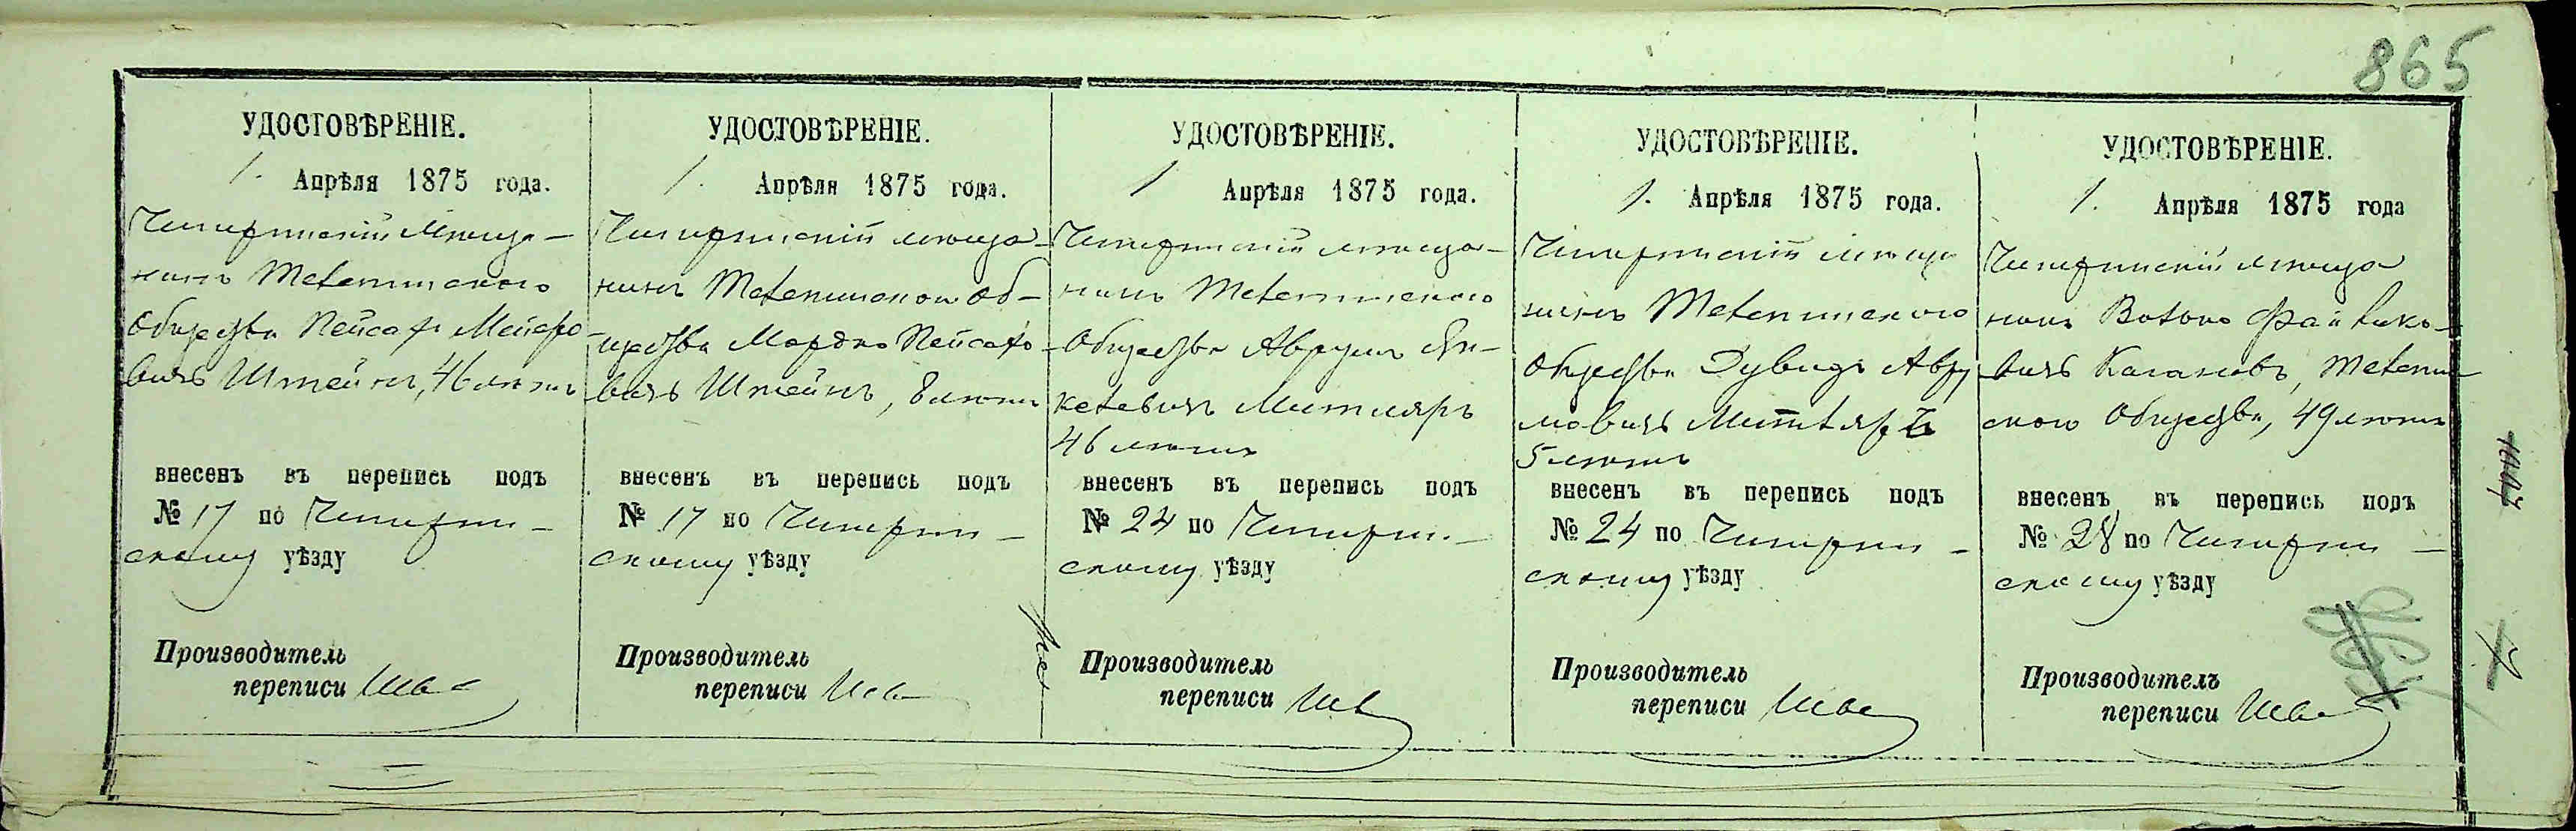 865
УДОСТОВѢРЕНІЕ.
1. Апрѣля 1875 года.
Чигиринскій мѣща-
нинъ Меленинского
Общества Пейсах Меиеро-
вичъ Штейнъ, 46 лѣтъ
внесенъ въ перепись подъ
№ 17 по Чигирин-
скому уѣзду
Производитель
переписи
УДОСТОВѢРЕНІЕ.
1. Апрѣля 1875 года.
Чигиринскій мѣща-
нинъ об-
щества Мордко Пейсахо-
вичъ Штейнъ, 8 лѣтъ
внесенъ въ перепись подъ
№ 17 по Чигирин-
скому уѣзду
Производитель
переписи
УДОСТОВѢРЕНІЕ.
1 Апрѣля 1875 года.
Чигиринскій мѣща-
нинъ
Общества Аврумъ Ян-
келевичъ Митляръ
46 лѣтъ
внесенъ въ перепись подъ
№ 24 по Чигирин-
скому уѣзду
Производитель
переписи
УДОСТОВѢРЕНІЕ.
1. Апрѣля 1875 года.
Чигиринскій мѣща
нинъ
Общества Дувидъ Авру
мовичъ Митляръ
5 лѣтъ
внесенъ въ перепись подъ
№ 24 по Чигирин-
скому уѣзду
Производитель
переписи
УДОСТОВѢРЕНІЕ.
1. Апрѣля 1875 года
Чигиринскій мѣща
нинъ Волько Файвико-
вичъ Кагановъ,
ского Общества, 49 лѣтъ
внесенъ въ перепись подъ
№ 28 по Чигирин-
скому уѣзду
Производитель
переписи